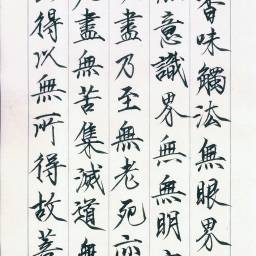 香味觸法無眼界
無意識界無無明
盡乃至無老死亦
盡無苦集滅道無
得以無所得故菩